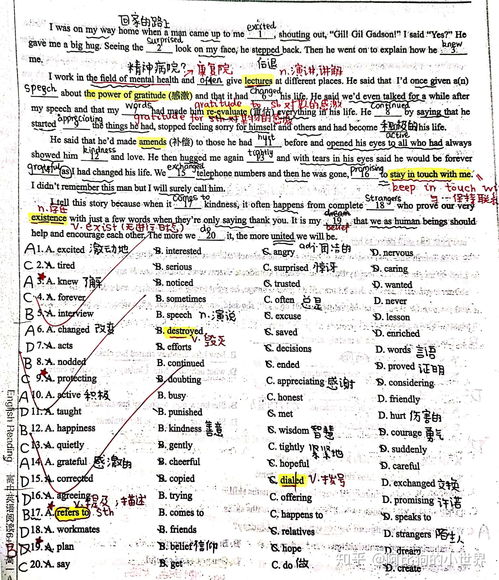 回家的路上
excited
I was on my way home when a man came up to me 1 , shouting, "Gill! Gil Gadson!" I said "Yes?" He
surprised knew
gave me a big hug. Seeing the 2 look on my face, he stepped back. Then we went on to explain how he 3
me.
精神病院? → 康复院 n.演讲,讲解
I work in the field of mental health and often give lectures at different places. He said that I'd once given a(n)
speech changed
5 about the power of gratitude (感激) and that it had 6 his life. He said we'd even talked for a while after
words gratitude to sb 对某人的感激 continued
my speech and that my 7 had made him re-evaluate (重估) everything in his life. He 8 by saying that he
appreciating gratitude for sth 积极的
started 9 the things he had, stopped feeling sorry for himself and others and had become 10 in his life.
hurt
He said that he'd made amends (补偿) to those he had 11 before and opened his eyes to all who had always
kindness tightly
showed him 12 and love. He then hugged me again 13 and with tears in his eyes said he would be forever
grateful exchanged promising
14 as I had changed his life. We 15 telephone numbers and then he was gone, 16 to stay in touch with me.
I didn't remember this man but I will surely call him. keep in touch
comes to strangers
I tell this story because when it 17 kindness, it often happens from complete 18 who prove our very
n.存在 dream
existence with just a few words when they're only saying thank you. It is my 19 that we as human beings should
v. exist do belief
help and encourage each other. The more we 20 it, the more united we will be.
A 1. A. excited 激动地 B. interested C. angry D. nervous
C 2. A. tired B. serious C. surprised 惊讶 D. caring
A 3. A. knew 了解 B. noticed C. trusted D. wanted
C 4. A. forever B. sometimes C. often 总是 D. never
B 5. A. interview B. speech n.演说 C. excuse D. lesson
A 6. A. changed 改变 B. destroyed v. 毁灭 C. saved D. enriched
D 7. A. acts B. efforts C. decisions D. words 言语
B 8. A. nodded B. continued C. ended D. proved 证明
C 9. A. protecting B. doubting C. appreciating 感谢 D. considering
A 10. A. active 积极 B. busy C. honest D. friendly
D 11. A. taught B. punished C. met D. hurt 伤害的
B 12. A. happiness B. kindness 善意 C. wisdom 智慧 D. courage 勇气
C 13. A. quietly B. gently C. tightly 紧紧地 D. suddenly
A 14. A. grateful 感激的 B. cheerful C. hopeful D. careful
D 15. A. corrected B. copied C. dialed v.拨号 D. exchanged 交换
D 16. A. agreeing B. trying C. offering D. promising 许诺
B 17. A. refers to sth B. comes to C. happens to D. speaks to
D 18. A. workmates B. friends C. relatives D. strangers 陌生人
B 19. A. plan B. belief 信仰 C. hope D. dream
C 20. A. say B. get C. do 做 D. create
English Reading